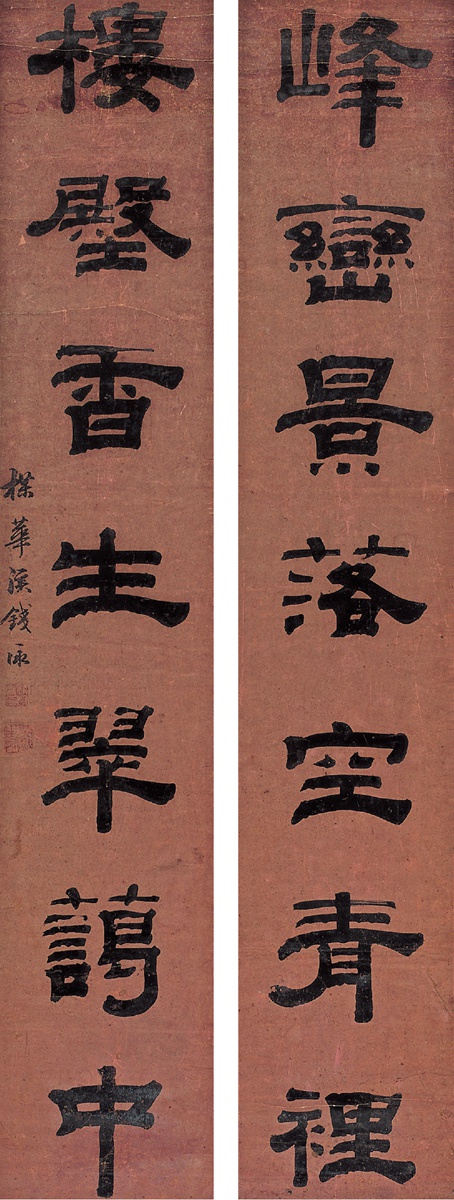 峰巒景落空青裡
樓壂香生翠藹中
楳華溪錢泳